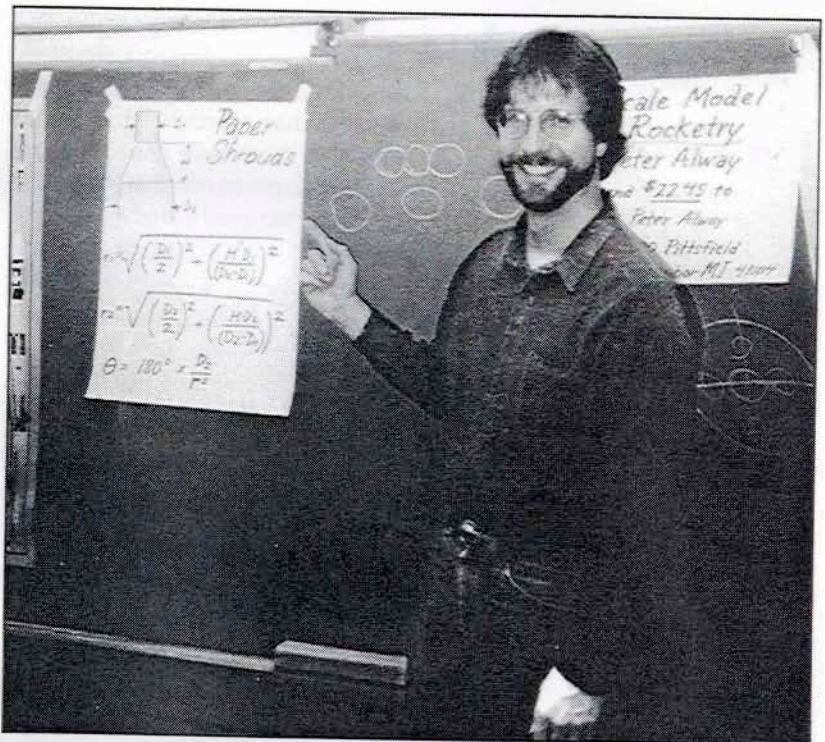 Paper
Shrouds
D₂
r1=√((D₁/2)²+(H D₁/(D₂-D₁))²)
r2=√((D₂/2)²+(H D₂/(D₂-D₁))²)
θ = 180° × D₂/r2
cale Model
Rocketry
eter Alway
$22.95 to
Peter Alway
Pittsfield
MI